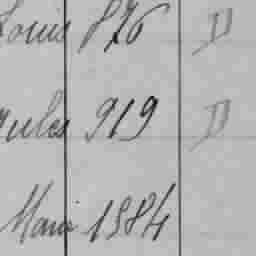 Louis 876 D
Jules 919 D
Marie 1984